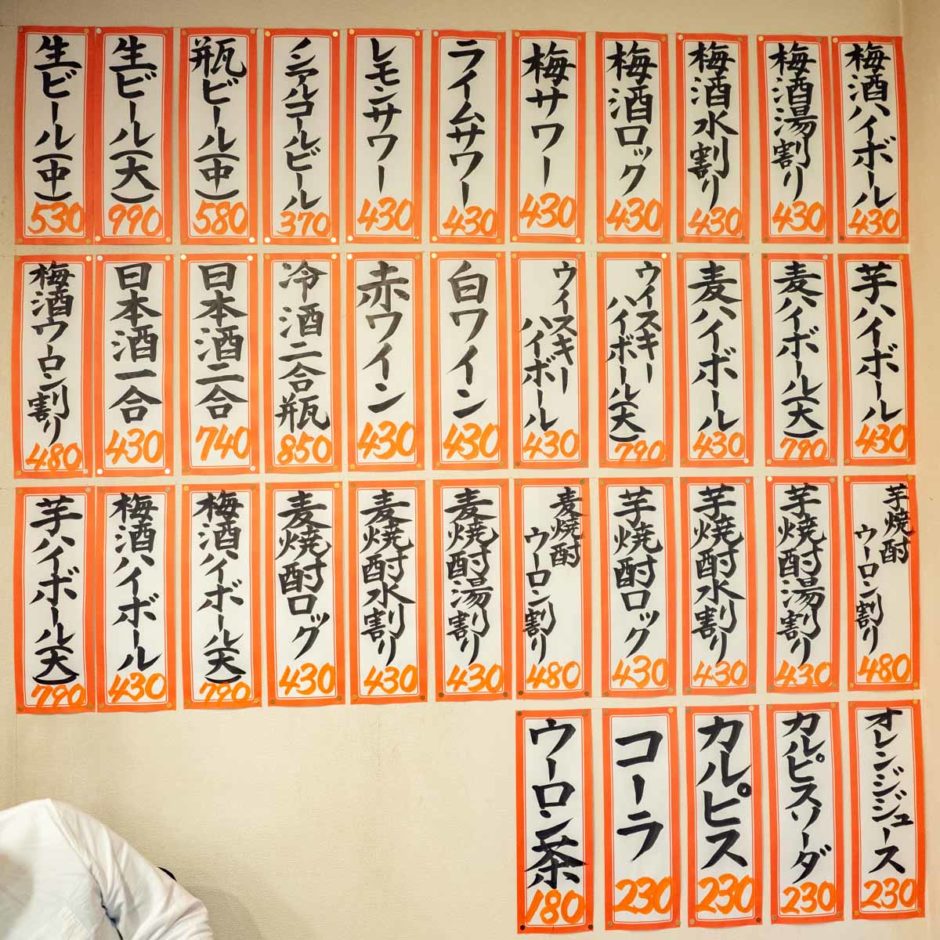 生ビール(中)
530
生ビール(大)
990
瓶ビール(中)
580
ノンアルコールビール
370
レモンサワー
430
ライムサワー
430
梅サワー
430
梅酒ロック
430
梅酒水割り
430
梅酒湯割り
430
梅酒ハイボール
430
梅酒ウーロン割り
480
日本酒一合
430
日本酒二合
740
冷酒二合瓶
850
赤ワイン
430
白ワイン
430
ウイスキー
ハイボール
430
ウイスキー
ハイボール(大)
790
麦ハイボール
430
麦ハイボール(大)
790
芋ハイボール
430
芋ハイボール(大)
790
梅酒ハイボール
430
梅酒ハイボール(大)
790
麦焼酎ロック
430
麦焼酎水割り
430
麦焼酎湯割り
430
麦焼酎
ウーロン割り
480
芋焼酎ロック
430
芋焼酎水割り
430
芋焼酎湯割り
430
芋焼酎
ウーロン割り
480
ウーロン茶
180
コーラ
230
カルピス
230
カルピスソーダ
230
オレンジジュース
230